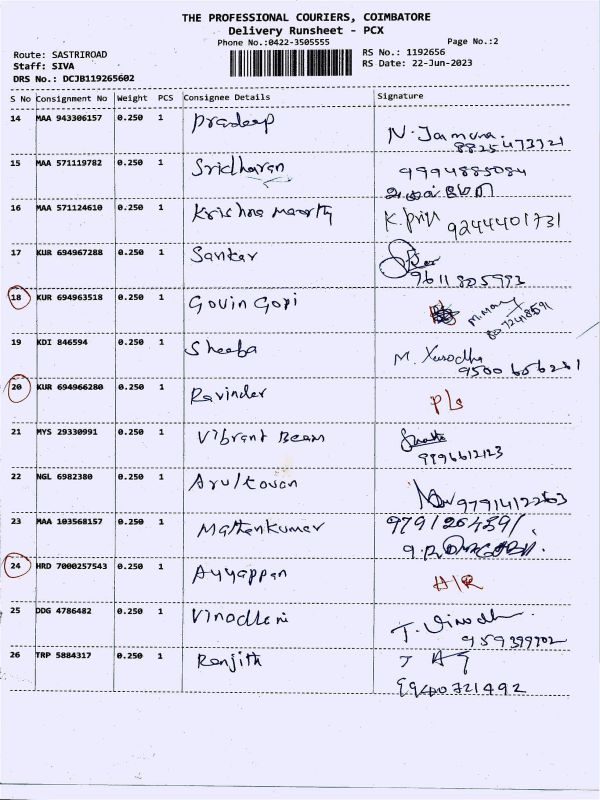 THE PROFESSIONAL COURIERS, COIMBATORE
Delivery Runsheet - PCX
Phone No.:0422-3505555
Page No.:2
Route: SASTRIROAD
Staff: SIVA
DRS No.: DCJB119265602
RS No.: 1192656
RS Date: 22-Jun-2023
S No Consignment No Weight PCS Consignee Details Signature
14 MAA 943306157 0.250 1 Pradeep N. Jamuna.
8825473321
15 MAA 571119782 0.250 1 Sridharan 9994885084
16 MAA 571124610 0.250 1 Krishna moorthy K. Priya 9244401731
17 KUR 694967288 0.250 1 Sankar
9611805993
18 KUR 694963518 0.250 1 Govin Gopi M. Mary
19 KDI 846594 0.250 1 Sheeba M. Yasodha
9500656281
20 KUR 694966280 0.250 1 Ravinder P/s
21 MYS 29330991 0.250 1 Vibrant Beam
9996612123
22 NGL 6982380 0.250 1 Arulkovan
23 MAA 103568157 0.250 1 Mathankumar
24 HRD 7000257543 0.250 1 Ayyappan H/R
25 DDG 4786482 0.250 1 Vinodheni T. Vinodh
26 TRP 5884317 0.250 1 Renjith